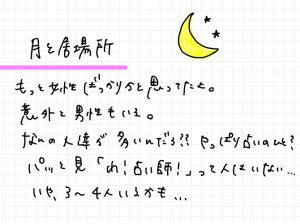 月と居場所
もっと女性ばっかりかと思ってたよ。
意外と男性もいる。
なんの人達が多いんだろ?? やっぱり占いのひと?
パッと見「れ!占い師!」って人はいない…
いや、3〜4人いるかも…